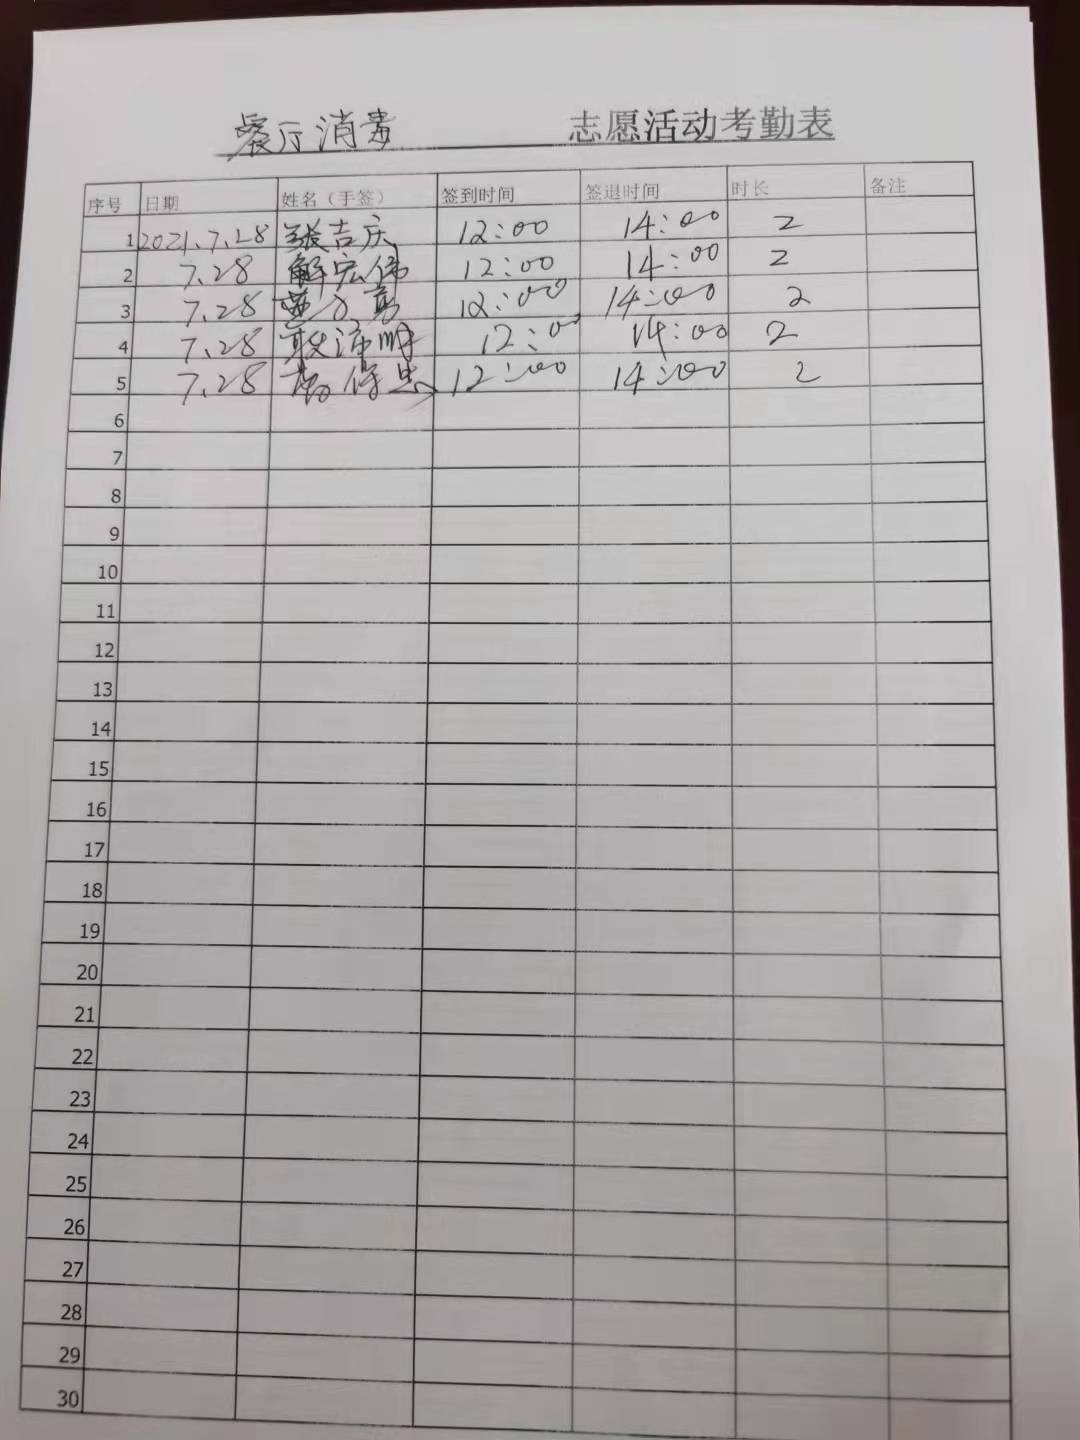 餐厅消毒 志愿活动考勤表
序号 日期 姓名（手签） 签到时间 签退时间 时长 备注
1 2021.7.28 张吉庆 12:00 14:00 2
2 7.28 解宏伟 12:00 14:00 2
3 7.28 12:00 14:00 2
4 7.28 耿沛明 12:00 14:00 2
5 7.28 12:00 14:00 2
6
7
8
9
10
11
12
13
14
15
16
17
18
19
20
21
22
23
24
25
26
27
28
29
30